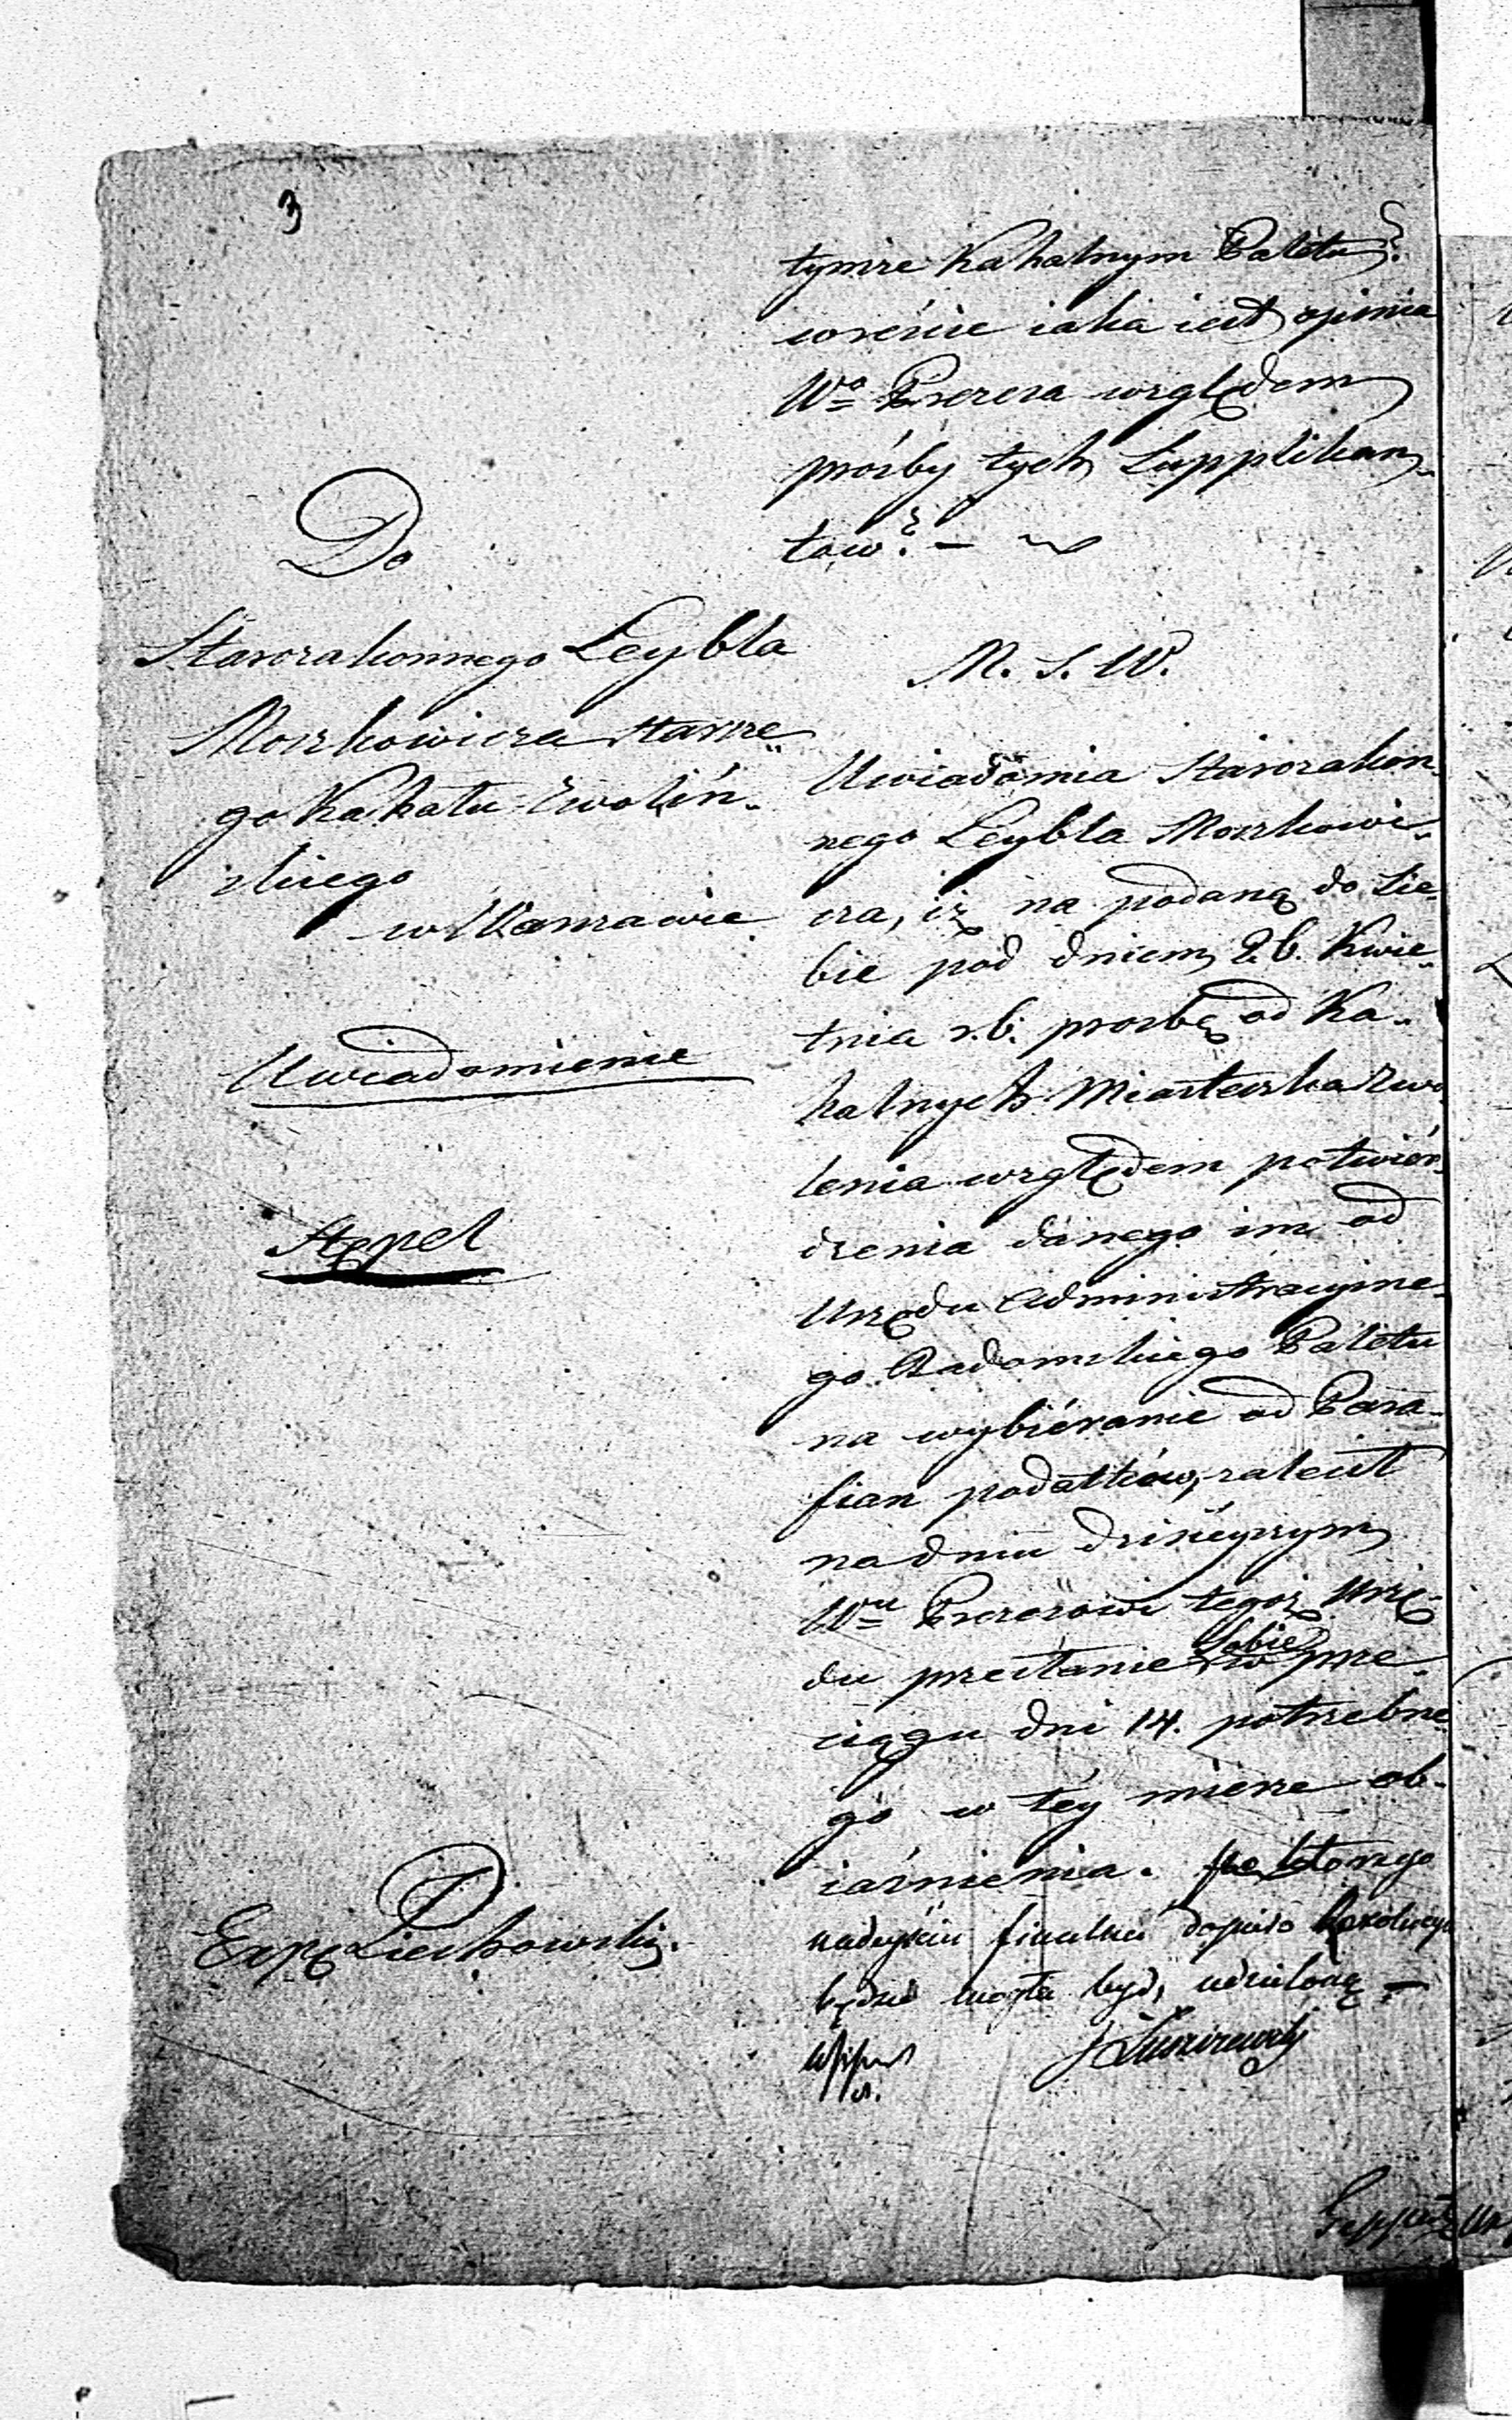 3
tymże Kahalnym Paletu?
wreście iaka iest opinia
Wo Prezesa względem
prośby tych Supplikan-
tow? -
Do
Starozakonnego Leybla
Moszkowicza starsze-
go Kahału Zwolin-
skiego
w Warszawie
Uwiadomienie
Stępel
M. S. W.
Uwiadomia Starozakon-
nego Leybla Moszkowi-
cza, iż na podaną do Sie-
bie pod dniem 26. Kwie-
tnia r. b. prośbę od Ka-
halnych Miasteczka Zwo-
lenia względem potwier-
dzenia danego im od
Urzędu Administracyine-
go Radomskiego Paletu
na wybiéranie od Para-
fian podatków, zalecił
na dniu dzisieyszym
Wu Prezesowi tegoż Urzę-
du przesłanie Sobie w prze-
ciągu dni 14. potrzebne-
go w téy mierze ob-
iaśnienia. po którego
nadeyściu finalna dopiero Rezolucya
będzie mogła być udzieloną -
Exp Liechowski.